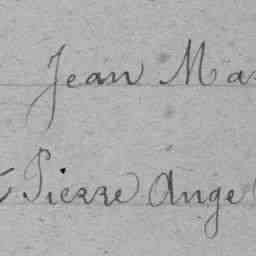 Jean Ma
Pierre Ange